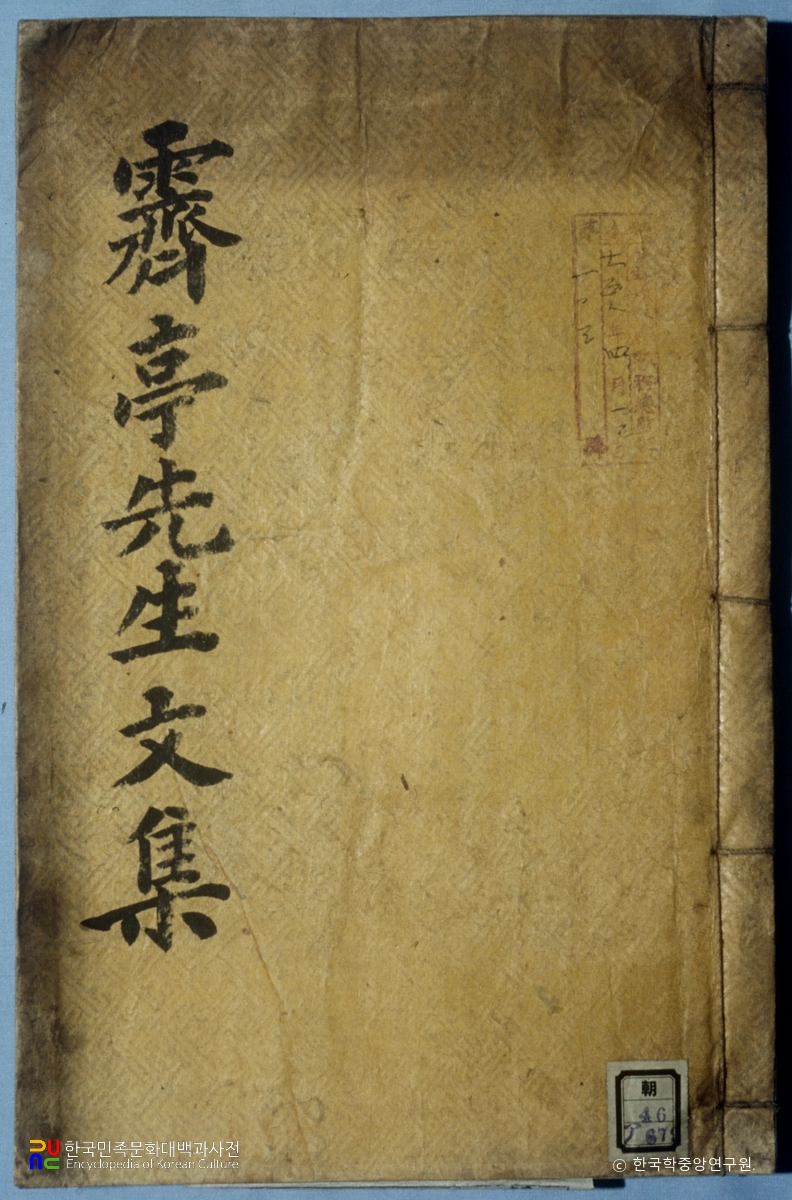 霽亭先生文集
朝
46
한국민족문화대백과사전
Encyclopedia of Korean Culture
ⓒ 한국학중앙연구원